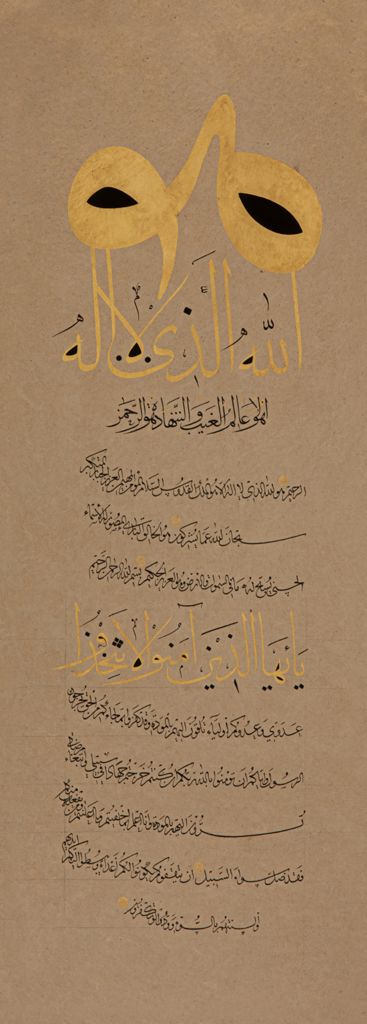 هو
الله الذي لا إله
إلا هو عالم الغيب والشهادة هو الرحمن
الرحيم هو الله الذي لا إله إلا هو الملك القدوس السلام المؤمن المهيمن العزيز الجبار المتكبر
سبحان الله عما يشركون هو الله الخالق البارئ المصور له الأسماء
الحسنى يسبح له ما في السموات والأرض وهو العزيز الحكيم بسم الله الرحمن الرحيم
يا أيها الذين آمنوا لا تتخذوا
عدوي وعدوكم أولياء تلقون إليهم بالمودة وقد كفروا بما جاءكم من الحق يخرجون
الرسول وإياكم أن تؤمنوا بالله ربكم إن كنتم خرجتم جهادا في سبيلي وابتغاء مرضاتي
تسرون إليهم بالمودة وأنا أعلم بما أخفيتم وما أعلنتم ومن يفعله منكم
فقد ضل سواء السبيل إن يثقفوكم يكونوا لكم أعداء ويبسطوا إليكم أيديهم
وألسنتهم بالسوء وودوا لو تكفرون